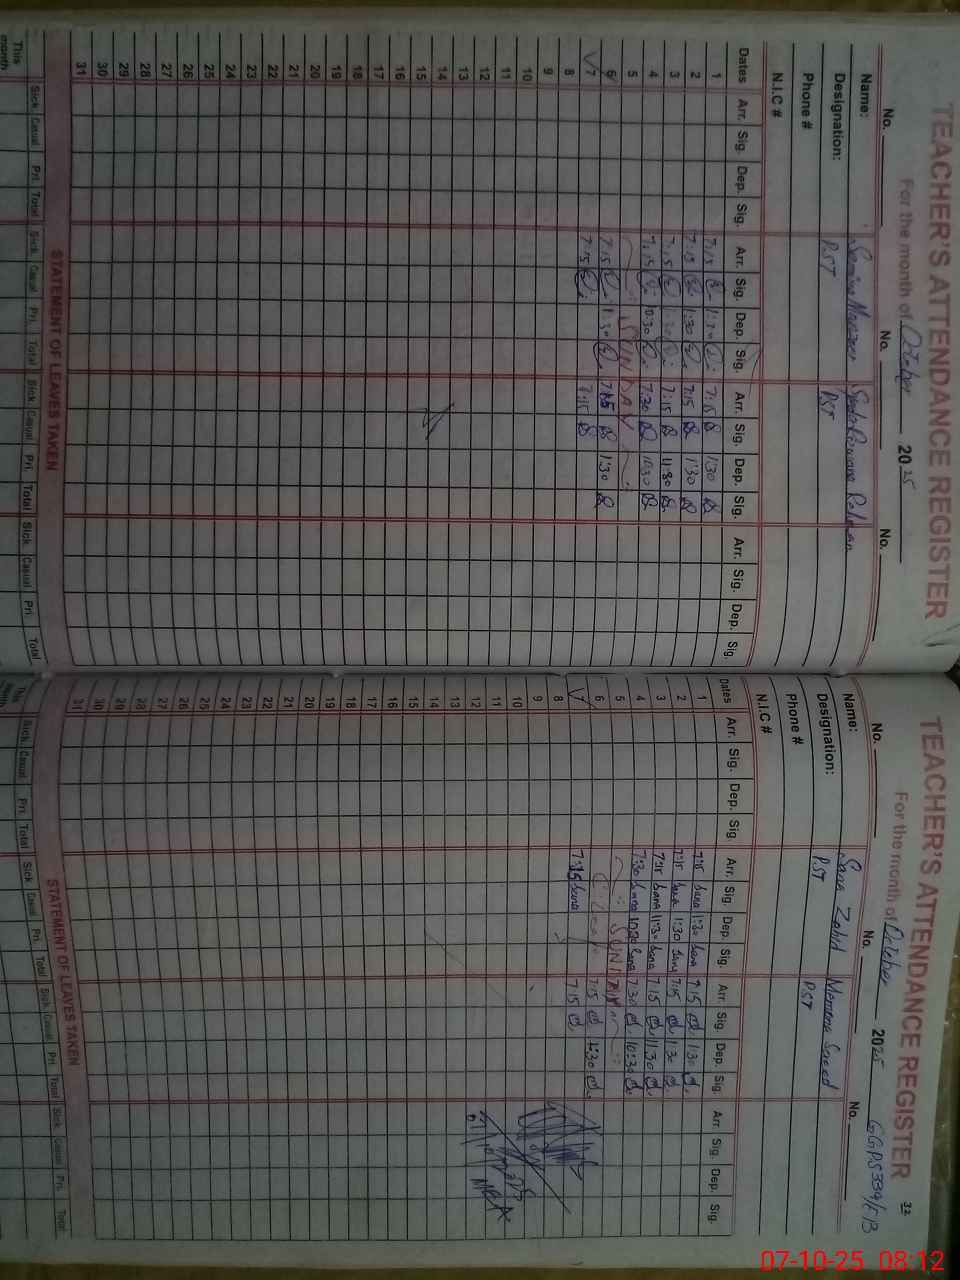 TEACHER'S ATTENDANCE REGISTER
For the month of October 2025
No. No. No.
Name: Samina Manzoor Syeda Rizwana Rehman
Designation: PST PST
Phone #
N.I.C #
Dates Arr. Sig. Dep. Sig. Arr. Sig. Dep. Sig. Arr. Sig. Dep. Sig. Arr. Sig. Dep. Sig.
1 7:15 1:30 7:15 1:30
2 7:15 1:30 7:15 1:30
3 7:15 11:30 7:15 11:30
4 7:15 10:30 7:30 10:30
5 SUNDAY
6 7:15 1:30 7:15 1:30
7 7:15 7:15
8
9
10
11
12
13
14
15
16
17
18
19
20
21
22
23
24
25
26
27
28
29
30
31
STATEMENT OF LEAVES TAKEN
Sick. Casual Pri. Total Sick. Casual Pri. Total Sick. Casual Pri. Total Sick. Casual Pri. Total
This month
TEACHER'S ATTENDANCE REGISTER 32
For the month of October 2025 GGPS 339/EB
No. No. No.
Name: Sana Zahid Memoona Saeed
Designation: PST PST
Phone #
N.I.C #
Dates Arr. Sig. Dep. Sig. Arr. Sig. Dep. Sig. Arr. Sig. Dep. Sig. Arr. Sig. Dep. Sig.
1 7:15 Sana 1:30 Sana 7:15 1:30
2 7:15 Sana 1:30 Sana 7:15 1:30
3 7:15 Sana 11:30 Sana 7:15 11:30
4 7:30 Sana 10:30 Sana 7:30 10:30
5 SUNDAY
6 C. Leave 7:15 1:30
7 7:15 Sana 7:15
8
9
10
11
12
13
14
15
16
17
18
19
20
21
22
23
24
25
26
27
28
29
30
31
STATEMENT OF LEAVES TAKEN
Sick. Casual Pri. Total Sick. Casual Pri. Total Sick. Casual Pri. Total Sick. Casual Pri. Total
This month
07-10-25 08:12